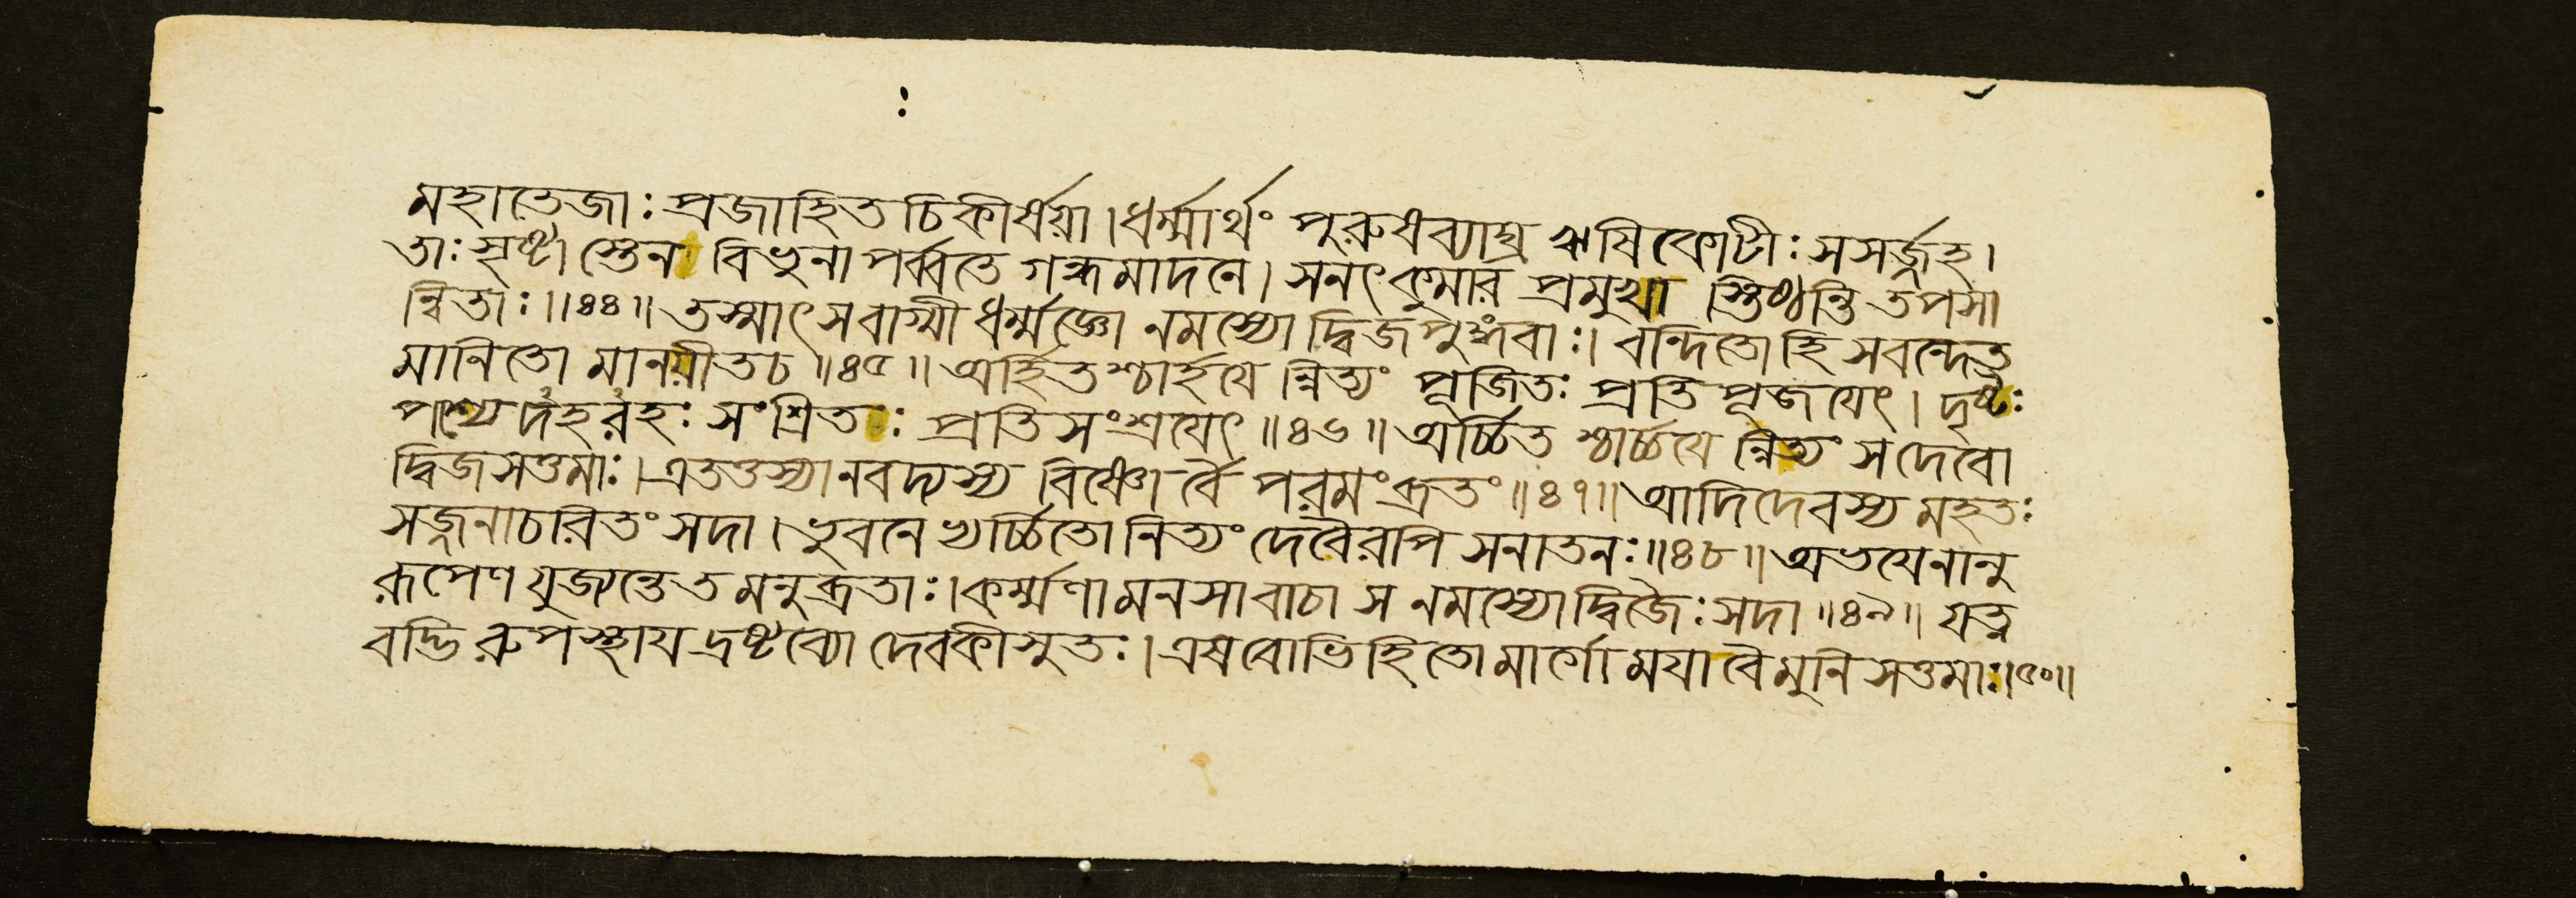 মহাতেজাঃ প্রজাহিতচিকীর্ষয়া। ধর্ম্মার্থং পুরুষব্যাঘ্র ঋষিকোটীঃ সসর্জ্জহ।
তাঃ সৃষ্টাস্তেন বিভুনা পর্ব্বতে গন্ধমাদনে। সনৎকুমার প্রমুখা স্তিষ্ঠন্তি তপসা
ন্বিতাঃ॥৪৪॥ তস্মাৎ সবাগ্মী ধর্ম্মজ্ঞো নমস্যো দ্বিজপুঙ্গবাঃ। বন্দিতোহি সবন্দেত
মানিতো মানয়ীতচ॥৪৫॥ অর্হিতশ্চার্হয়ে ন্নিত্যং পূজিতঃ প্রতি পূজয়েৎ। দৃষ্টঃ
পশ্যেদহরহঃ সংশ্রিতঃ প্রতিসংশ্রয়েৎ॥৪৬॥ অর্চ্চিত শ্চার্চ্চয়ে ন্নিত্যং স দেবো
দ্বিজসত্তমাঃ। এতত্তস্যানবদ্যস্য বিষ্ণো র্বৈ পরমং ব্রতং॥৪৭॥ আদিদেবস্য মহতঃ
সজ্জনাচরিতং সদা। ভুবনে ভ্যর্চ্চিতো নিত্যং দেবৈরপি সনাতনঃ॥৪৮॥ অভয়েনানু
রূপেণ যুজ্যন্তে তমনুব্রতাঃ। কর্ম্মণা মনসা বাচা স নমস্যো দ্বিজৈঃ সদা॥৪৯॥ যত্ন
বদ্ভি রুপস্থায় দ্রষ্টব্যো দেবকীসুতঃ। এষ বোভিহিতো মার্গো ময়া বৈ মুনিসত্তমাঃ।৫০॥